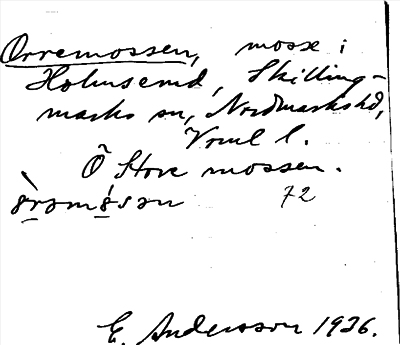 Orremossen, mosse i
Holmserud, Skilling-
marks sn, Nordmarks hd,
Verml l.
Ö Store mossen.
72
E. Andersson 1936.